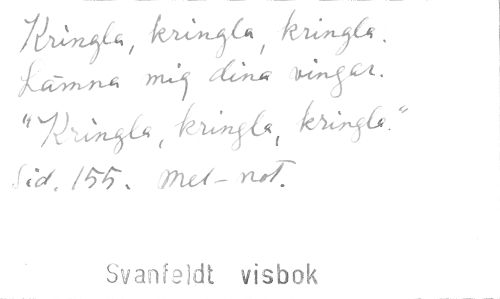 Kringla, kringla, kringla.
Lämna mig dina vingar.
"Kringla, kringla, kringla."
Sid. 155. Mel-not.
Svanfeldt visbok